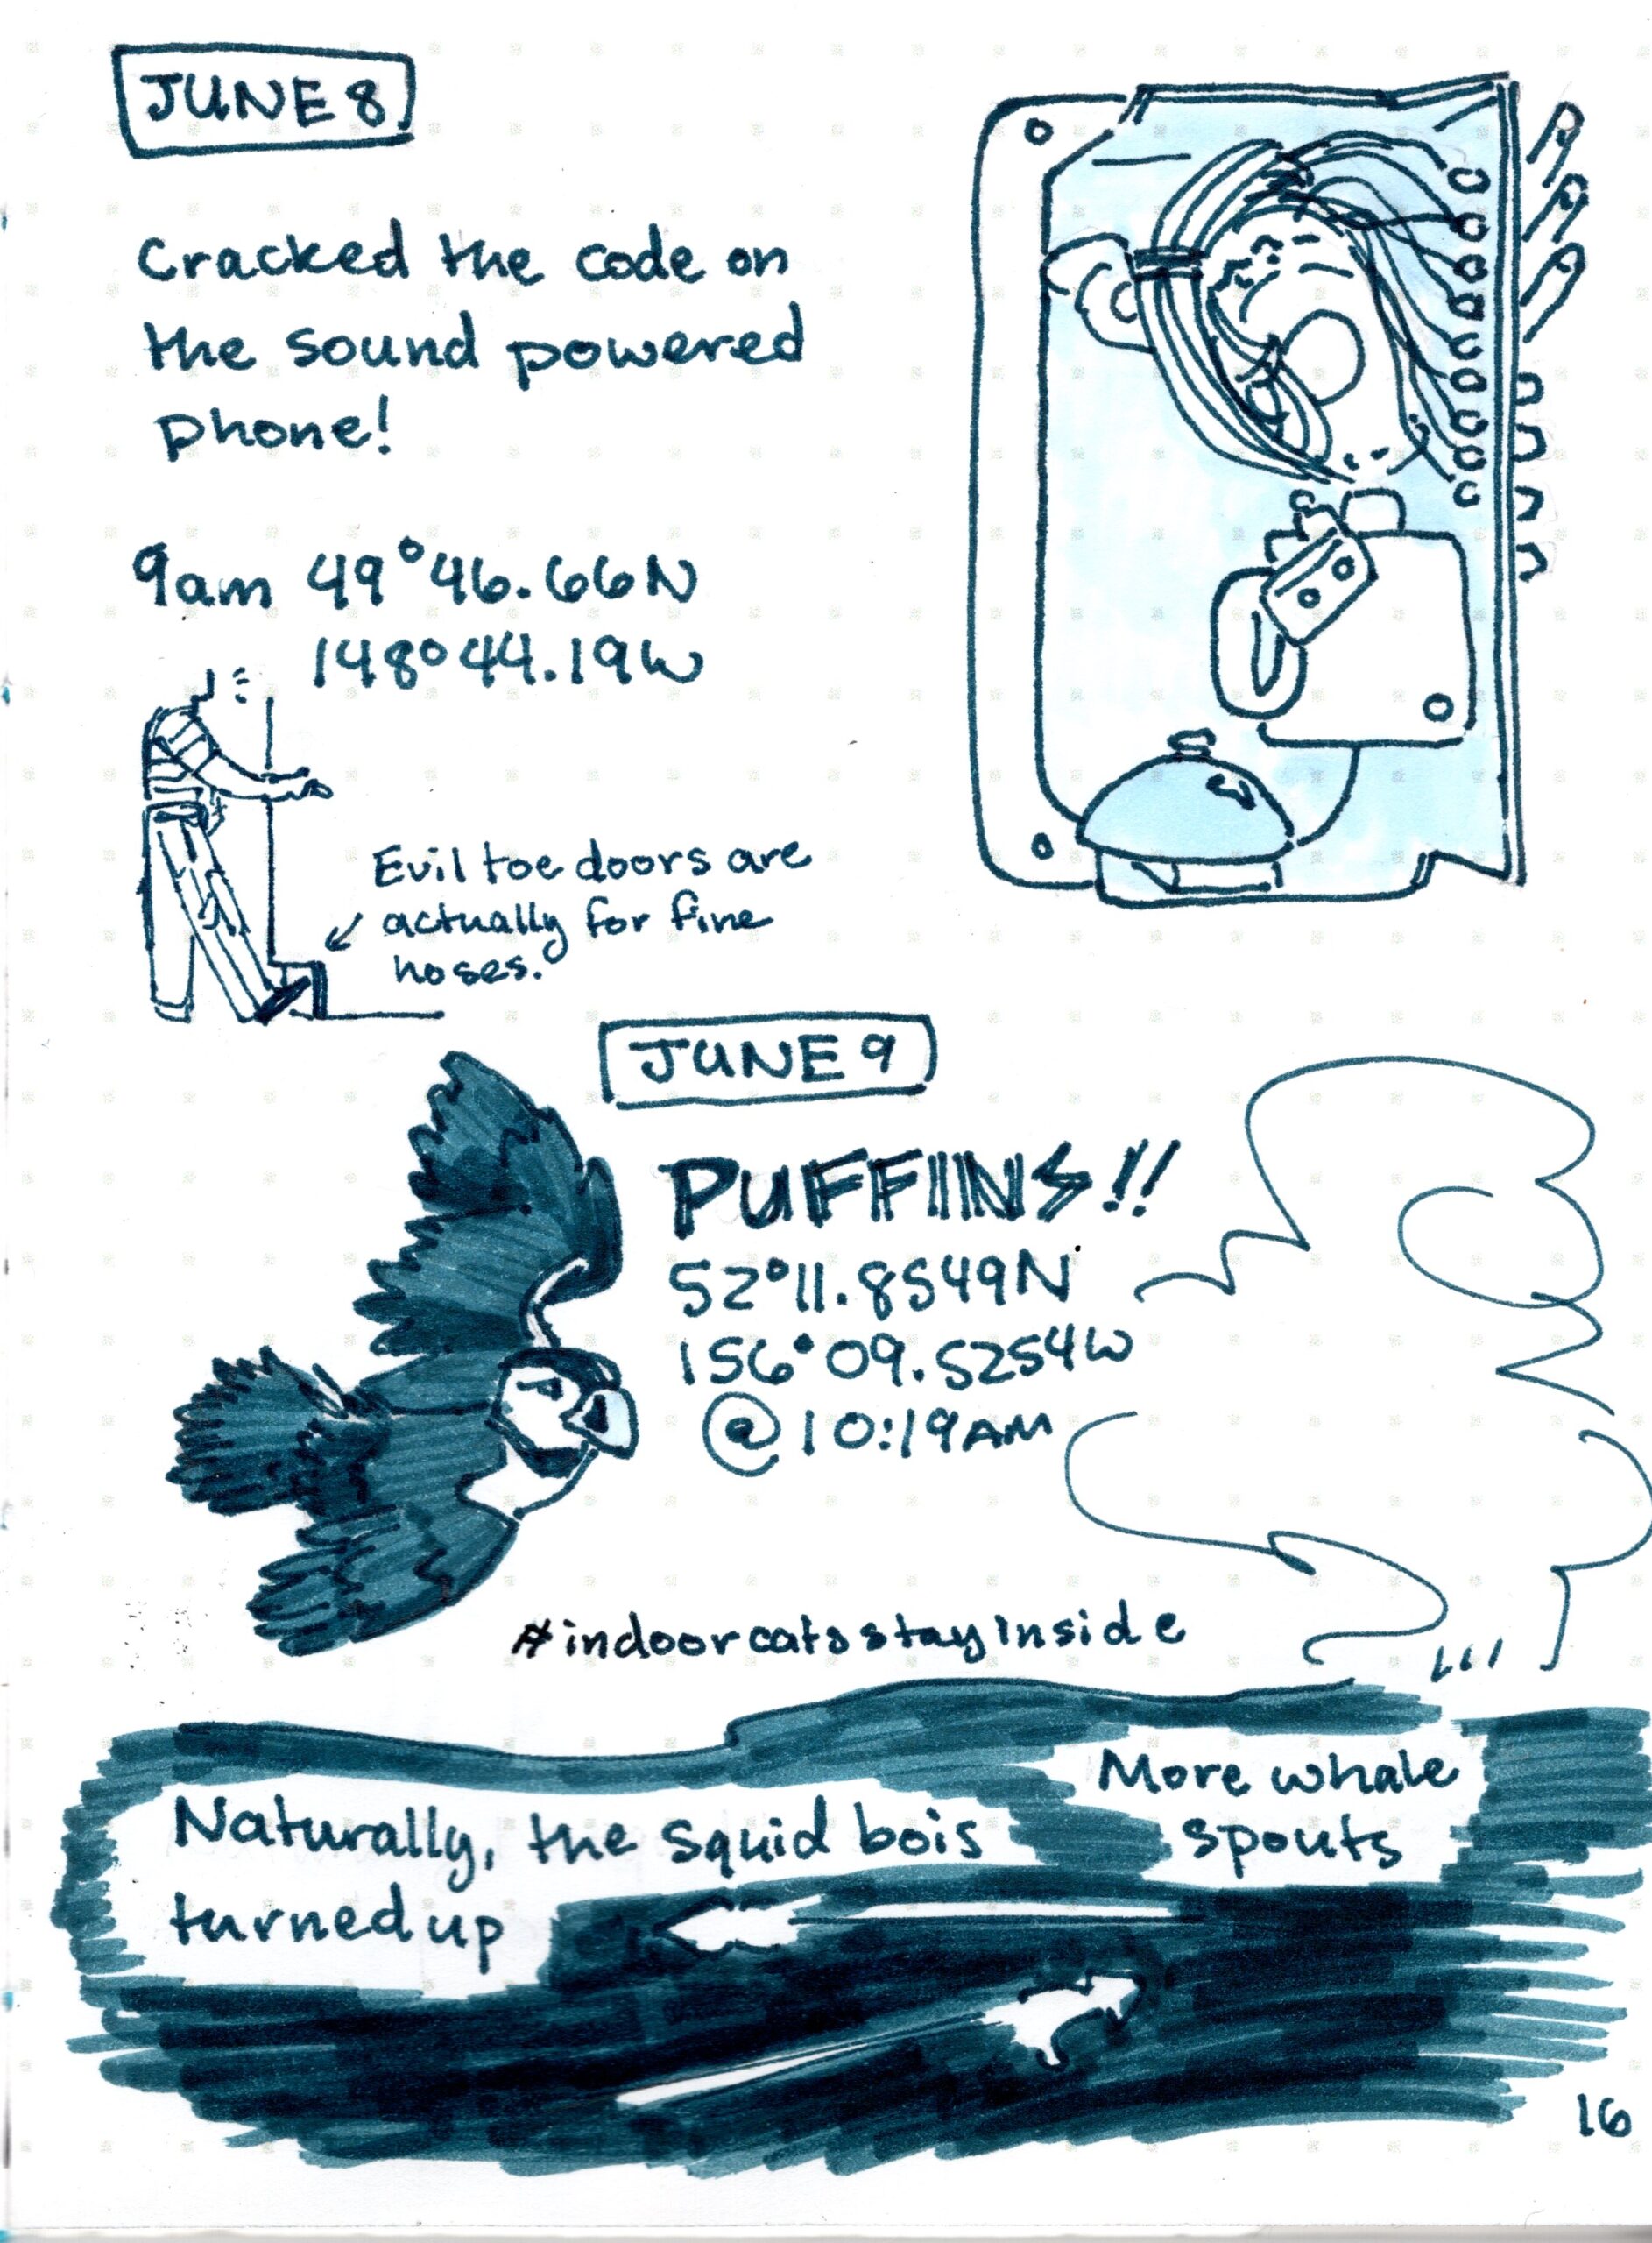 JUNE 8
Cracked the code on
the sound powered
phone!
9am 49°46.66N
148°44.19W
Evil toe doors are
actually for fine
hoses.
JUNE 9
PUFFINS!!
52°11.8549N
156°09.5254W
@10:19AM
#indoorcatsstayinside
More whale
spouts
Naturally, the squid bois
turned up
16